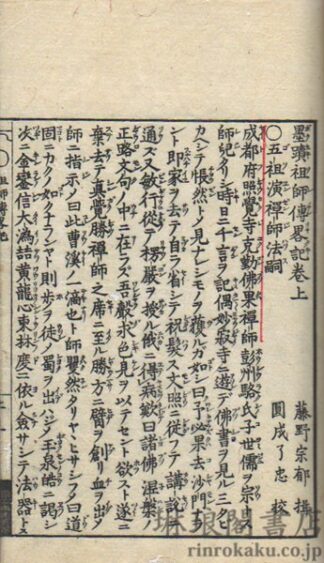 墨蹟祖師傳畧記卷上
藤野宗郁 撰
圓成了忠 校
〇五祖演禪師法嗣
成都府照覺寺克勤佛果禪師彭州駱氏子世儒ヲ宗トス
師兒タリシ時日ニ千言ヲ記偶妙寂寺ニ遊デ佛書ヲ見ル三タビ
カヘシテ悵然トシテ舊物ヲ獲ルガ如シ曰
ント即家ヲ去テ自ラ省シテ祝髮ス文照ニ從フテ講説ニ
通ス又敏行ニ從テ楞嚴ヲ授ル俄ニ得病歎曰諸佛涅槃ノ
正路文句ノ中ニ在ラズ吾聲求色見ヲ以テセント欲スト遂ニ
棄去テ真覺勝禪師之席ニ至ル勝方ニ臂ヲ創リ血ヲ出ス
師ニ指示ノ曰此曹溪ノ一滴也ト師矍然タリヤヽヒサシフノ曰道
固ニカクノ如クナランヤト則歩ヲ徒ノ蜀ヲ出ハジメ玉泉皓ニ謁シ
次ニ金鑾信大溈喆黄龍心東林度ニ依ル僉サシテ法器トス
琳琅閣書店
rinrokaku.co.jp